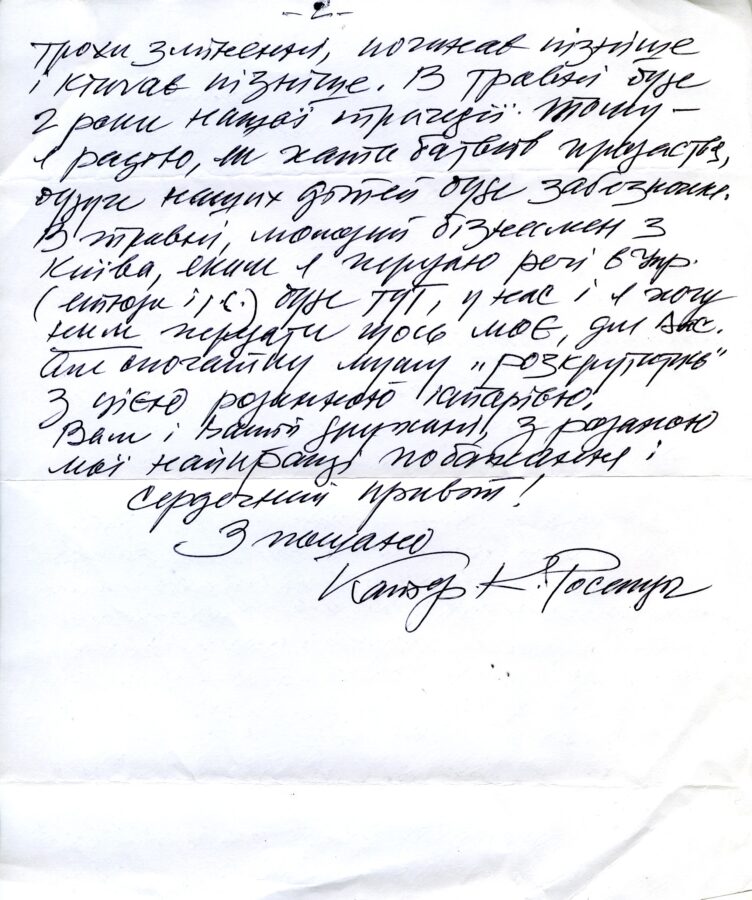 - 2 -
трохи змінення, починав пізніше
і кінчав пізніше. В травні буде
2 роки нашої трагедії. Тому –
я радію, як хата батьків продасться,
наших дітей буде
В травні, молодий бізнесмен з
Київа, яким я передаю речі в Укр.
буде тут, у нас і я хочу
ним передати щось моє, для
Але спочатку мушу „розкрутитись"
з цією родинною
Вам і Вашій дружині, з родиною
мої найкращі побажання і
сердечний привіт!
З пошаною
К. Росандич